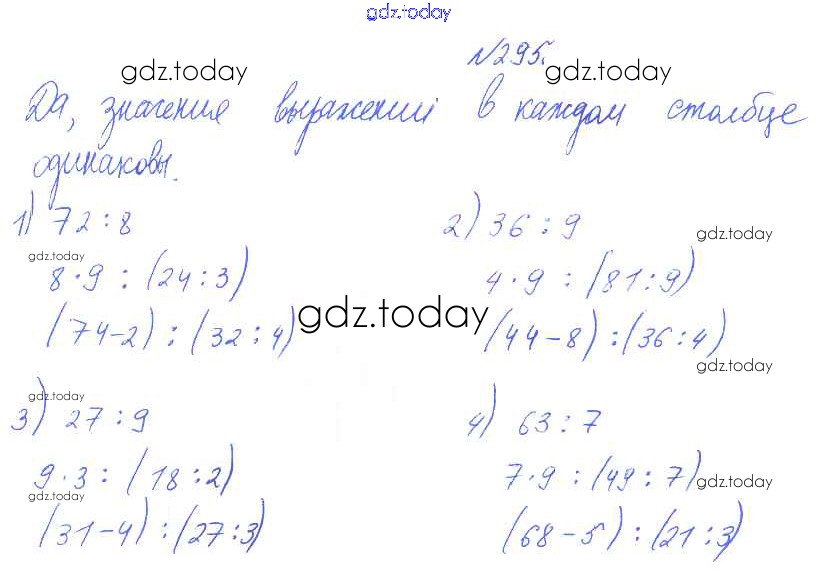 gdz.today
№295.
gdz.today
Да, значения выражений в каждом столбце
одинаковы.
1) 72 : 8
2) 36 : 9
gdz.today
gdz.today
8 · 9 : (24 : 3)
4 · 9 : (81 : 9)
(74 - 2) : (32 : 4)
gdz.today
(44 - 8) : (36 : 4)
gdz.today
gdz.today
3) 27 : 9
4) 63 : 7
9 · 3 : (18 : 2)
7 · 9 : (49 : 7)
gdz.today
gdz.today
(31 - 4) : (27 : 3)
(68 - 5) : (21 : 3)